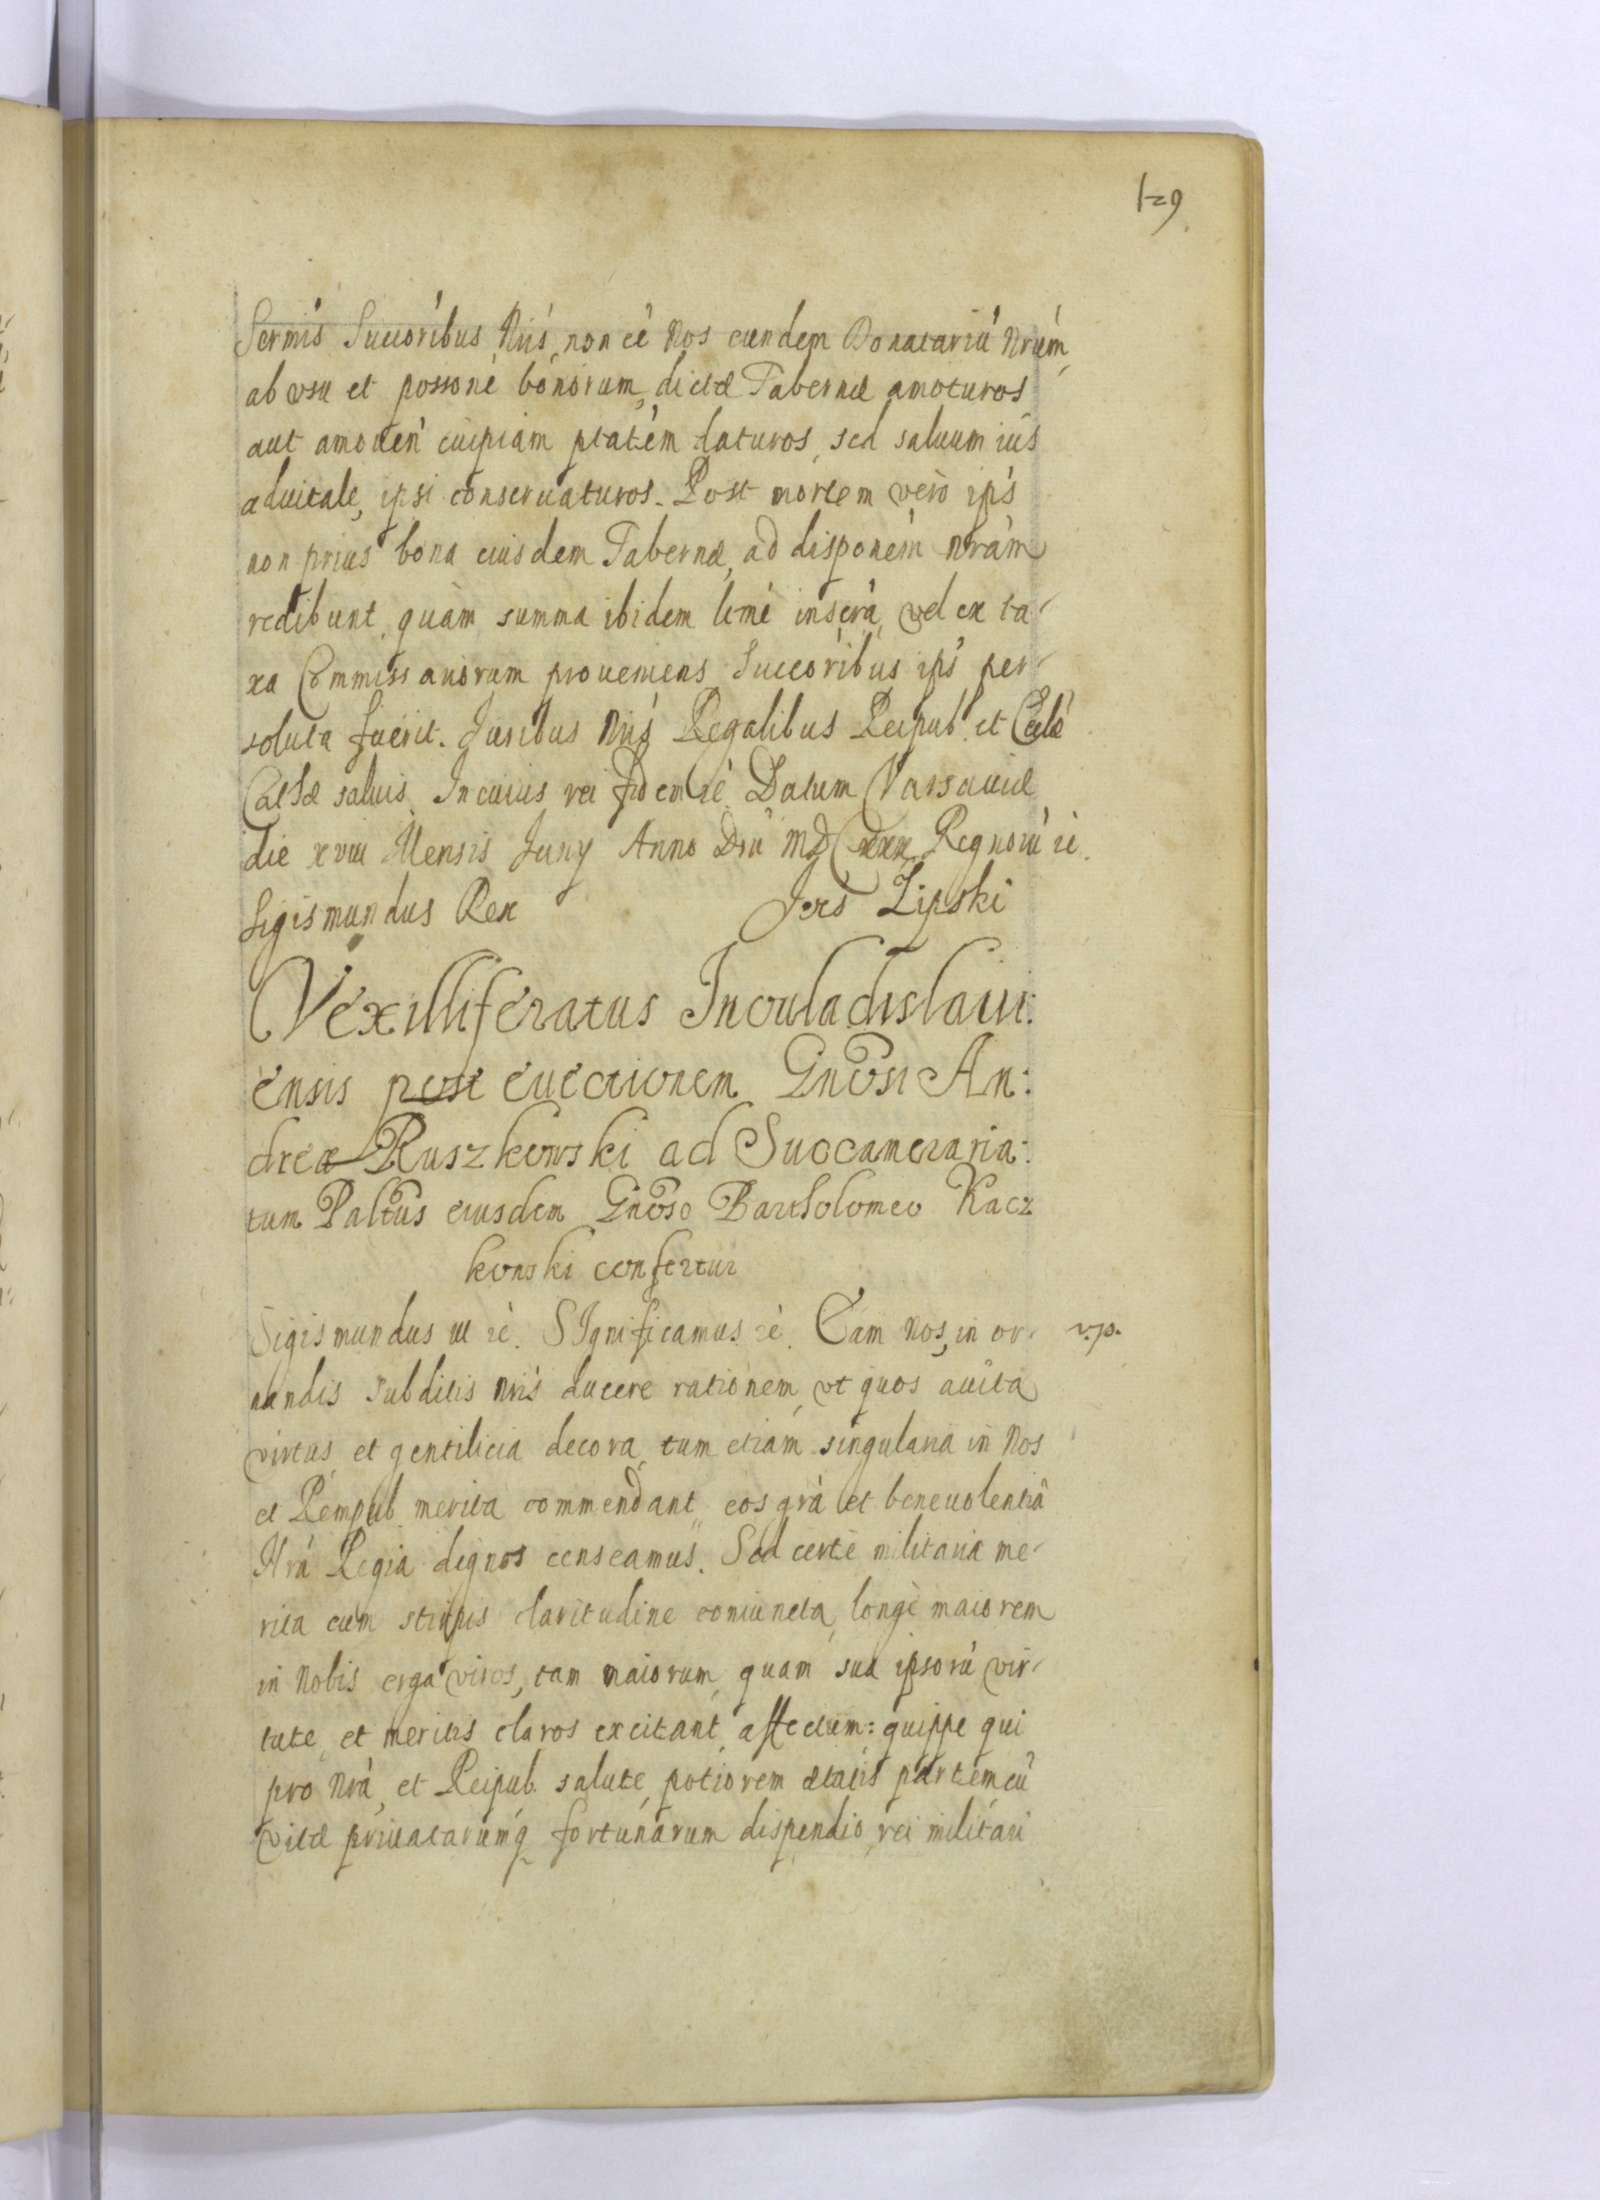 129
Sermis Succoribus Nris, non eê Nos eundem Donatariû Nrum,
ab vsu et possone bonorum, dictæ Tabernæ amoturos
aut amouen cuipiam ptatem daturos, sed saluum ius
aduitale, ipsi conseruaturos. Post mortem verò ips
non prius bona eiusdem Tabernæ, ad disponem nram
redibunt, quàm summa ibidem lime inscra, vel ex ta-
xa Commissariorum proueniens Succoribus ips per-
soluta fuerit. Juribus Nris Regalibus Reipub. et Cclæ
Catholæ saluis. In cuius rei fidem ec. Datum Varsauiæ
die xviii Mensis Juny Anno Dnî MDCxxx Regnorû ec.
Sigismundus Rex Jers Lipski
Vexilliferatus Inouladislaui:
ensis post euectionem Gnosi An:
dreæ Ruszkowski ad Succameraria:
tum Palťus eiusdem Gnoso Bartholomeo Kacz
kowski confertur
Sigismundus iii ec. SIgnificamus ec. Eam Nos, in or- v.p.
nandis subditis nris ducere rationem, vt quos auita
virtus et gentilicia decora, tum etiam singularia in Nos
et Rempub. merita commendant, eos grà et beneuolentiâ
Nrà Regia dignos censeamus. Sed certè militaria me-
rita cum stirpis claritudine coniuncta, longè maiorem
in Nobis erga viros, tam maiorum, quam sua ipsorû vir-
tute, et meritis claros excitant, affectum: quippe qui
pro Nrà, et Reipub. salute, potiorem ætatis partem cû
vitæ priuatarumq fortunarum dispendio, rei militari